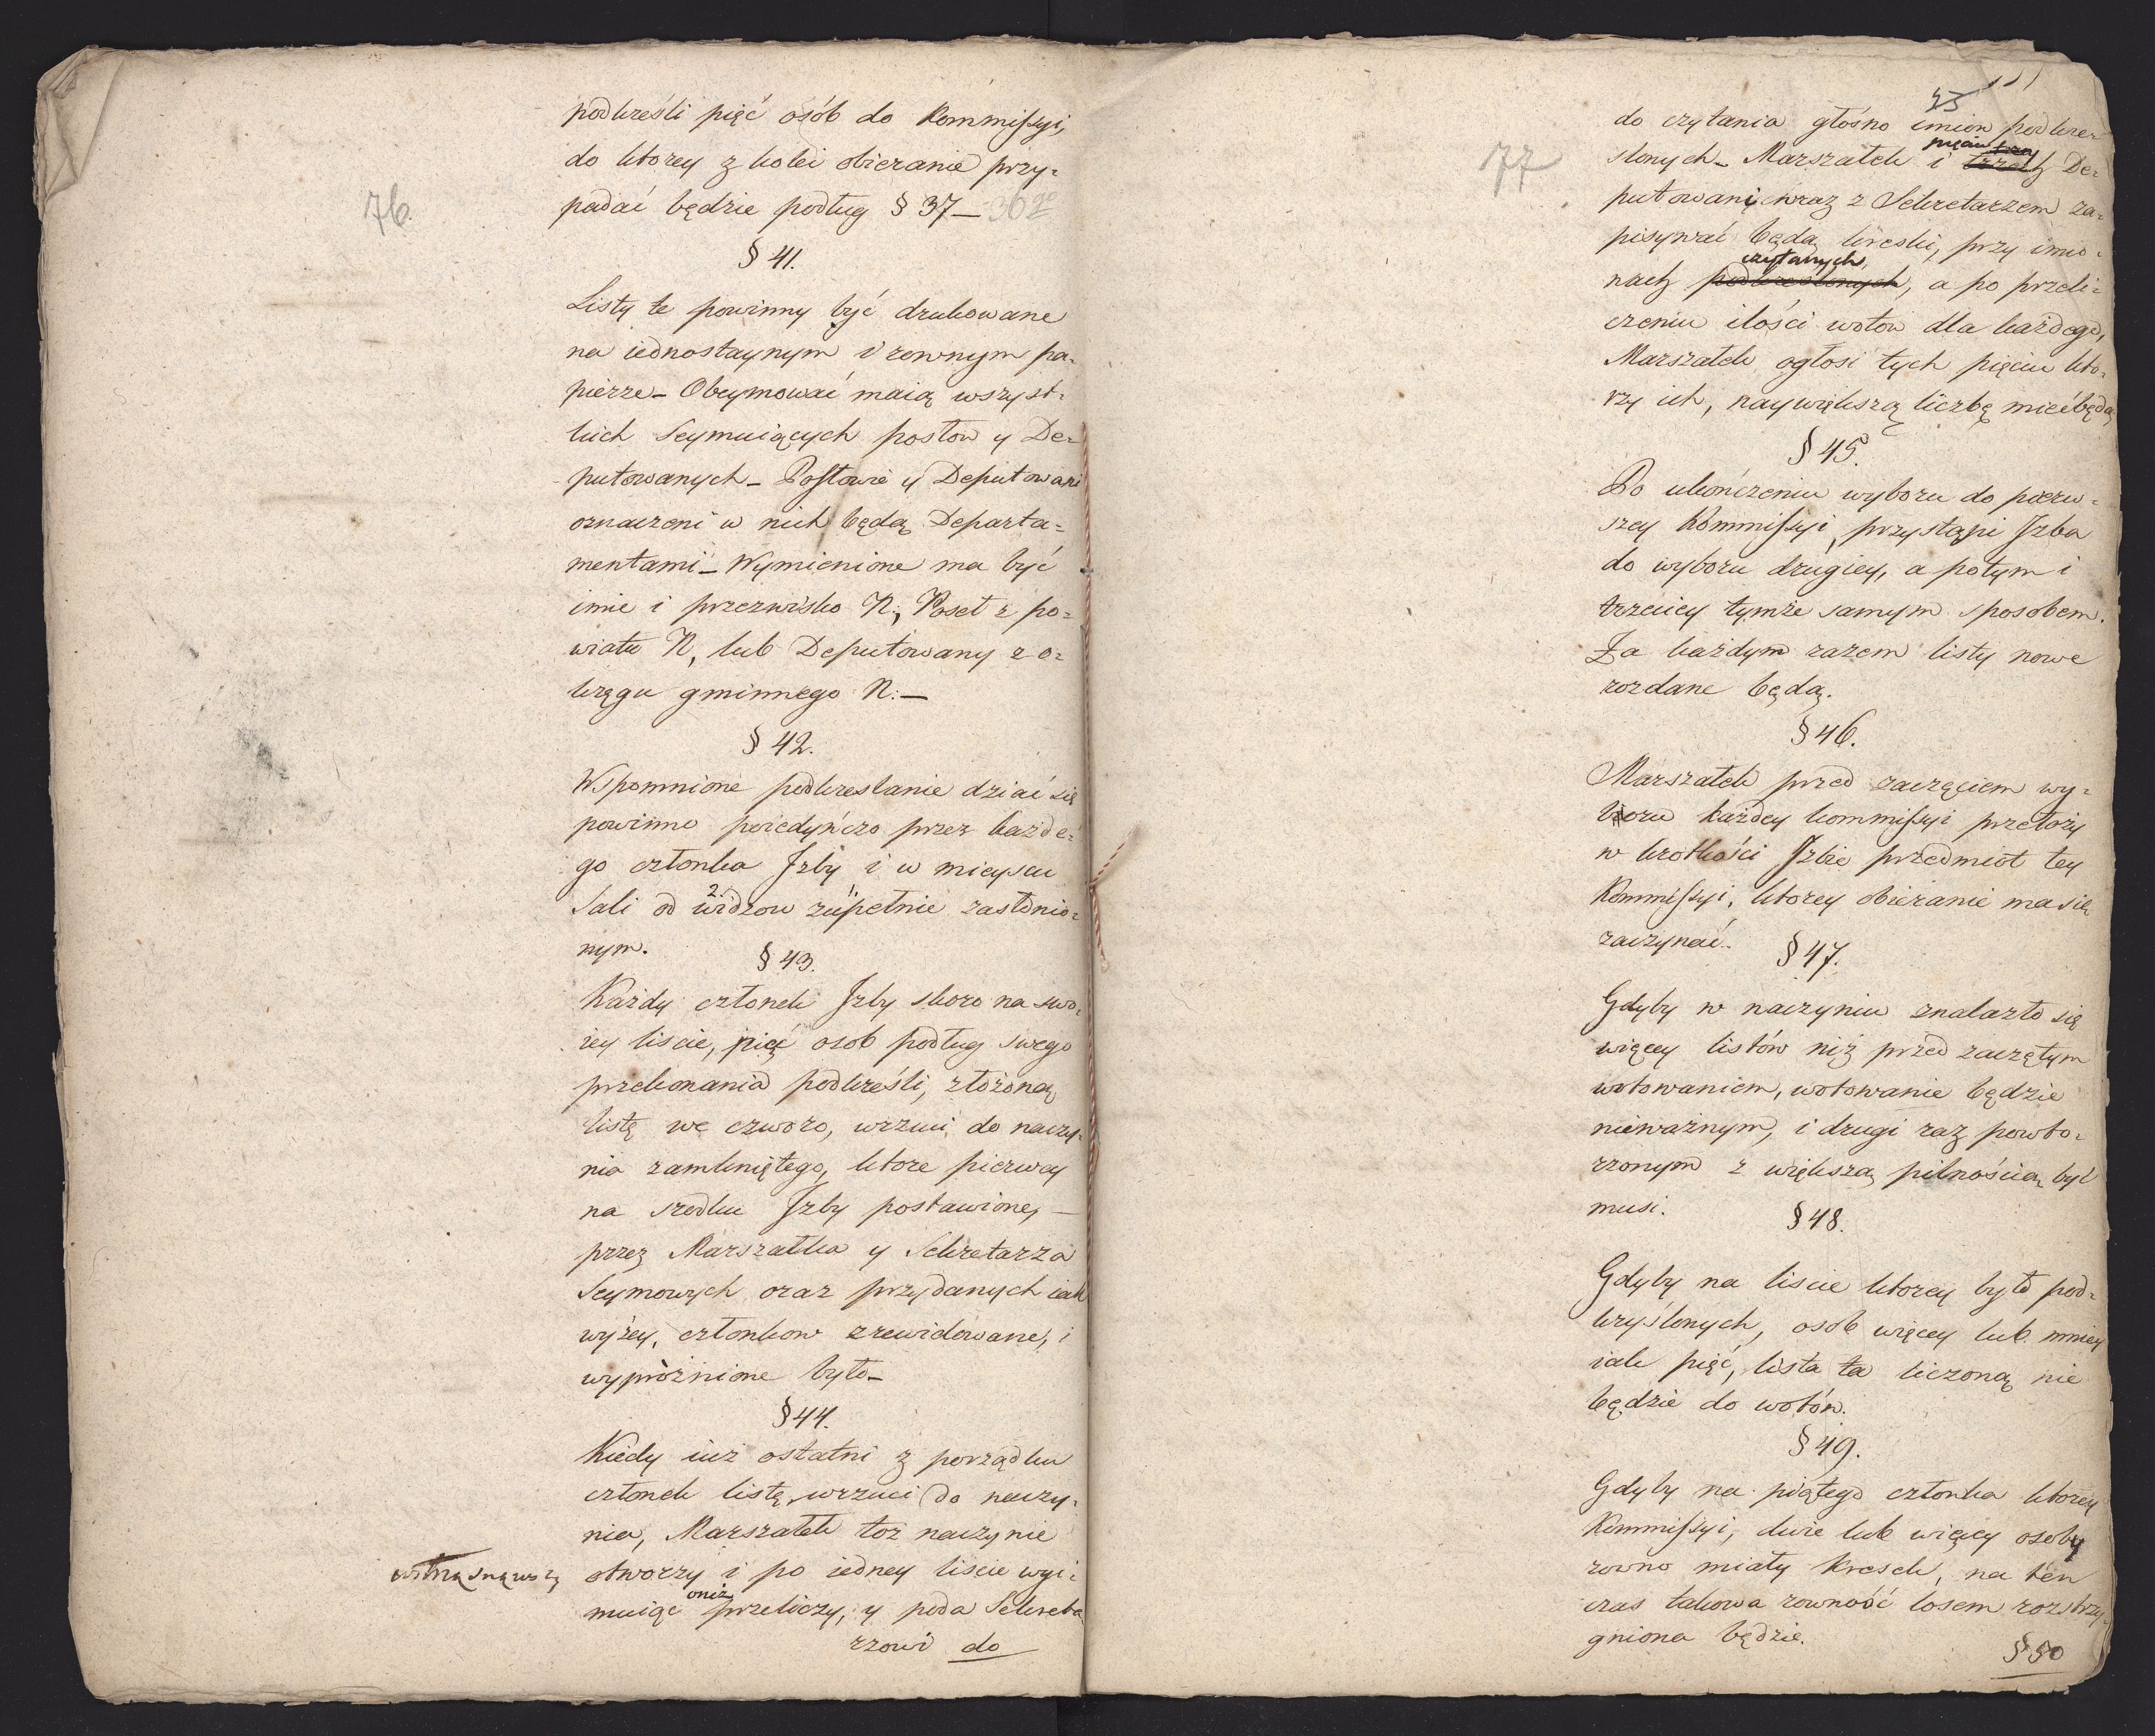 podkreśli pięć osób do Kommissyi,
do ktorey z kolei obieranie przy-
76.
padać będzie podług § 37 — 36 2º
§ 41.
Listy te powinny być drukowane
na iednostaynym i rownym pa-
pierze – Obeymować maią wszyst-
kich Seymuiących posłow y De-
putowanych – Posłowie y Deputowani
oznaczeni w nich będą Departa-
mentami – Wymienione ma być
imie i przezwisko N:, Poseł z po-
wiatu N, lub Deputowany z o-
kręgu gminnego N: —
§ 42.
Wspomnione podkreslanie dziać się
powinno poiedyńczo przez każde-
go członka Izby i w mieyscu
Sali od widzow zupełnie zasłonio-
nym.
§ 43.
Każdy członek Izby skoro na swo-
iey liscie, pięć osob podług swego
przekonania podkreśli, złożoną
listę we czworo, wrzuci do naczy-
nia zamkniętego, ktore pierwey
na srodku Izby postawione, —
przez Marszałka y Sekretarza
Seymowych oraz przydanych iak
wyżey, członkow zrewidowane, i
wyprożnione było –
§ 44.
Kiedy iuż ostatni z porządku
członek listę wrzuci do naczy-
nia, Marszałek toż naczynie
wstrząsnąwszy otworzy i po iedney liscie wyi-
muiąc oniż przeliczy, y poda Sekreta
rzowi do
43
do czytania głośno imion podkre-
77
slonych – Marszałek i pięciu trzech De-
putowani wraz z Sekretarzem za-
pisywać będą kreski, przy imio-
nach czytanych podkreslonych, a po przeli-
czeniu ilości wotow dla każdego,
Marszałek ogłosi tych pięciu kto-
rzy ich, naywiększą liczbę mieć będą
§ 45.
Po ukończeniu wyboru do pierw-
szey Kommissyi, przystąpi Izba
do wyboru drugiey, a potym i
trzeciey tymże samym sposobem.
Za każdym razem listy nowe
rozdane będą.
§ 46.
Marszałek przed zaczęciem wy-
boru każdey kommissyi przełoży
w krotkości Izbie przedmiot tey
Kommissyi, ktorey obieranie ma się
zaczynać.
§ 47.
Gdyby w naczyniu znalazło się
więcey listów niż przed zaczętym
wotowaniem, wotowanie będzie
nieważnym, i drugi raz powto-
rzonym z większą pilnością być
musi.
§ 48.
Gdyby na liscie ktorey było pod-
kryślonych, osób więcey lub mniey
iak pięć, lista ta liczoną nie
będzie do wotów.
§ 49.
Gdyby na piątego członka ktorey
Kommissyi, dwie lub więcey osoby
rowno miały kresek, na ten
czas takowa rowność losem rozstrzy-
gniona będzie.
§ 50